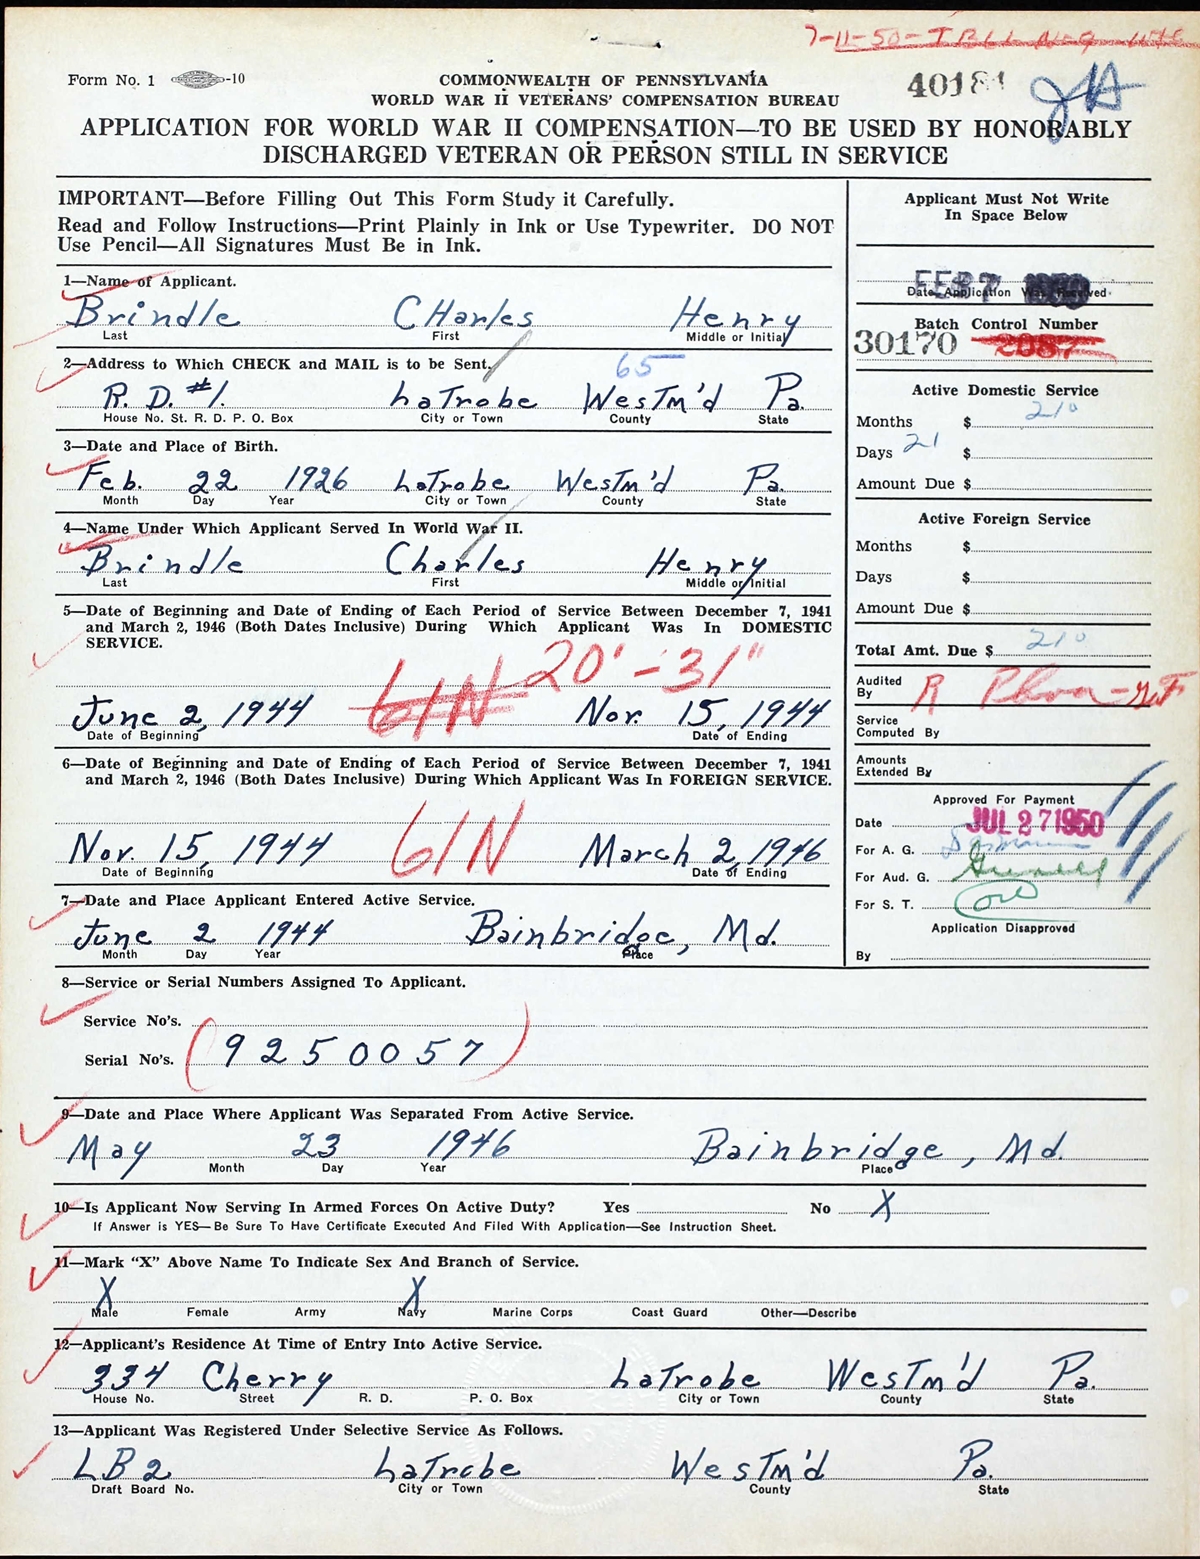 7-11-50-
Form No. 1 -10
COMMONWEALTH OF PENNSYLVANIA
WORLD WAR II VETERANS' COMPENSATION BUREAU
40181
APPLICATION FOR WORLD WAR II COMPENSATION—TO BE USED BY HONORABLY
DISCHARGED VETERAN OR PERSON STILL IN SERVICE
IMPORTANT—Before Filling Out This Form Study it Carefully.
Read and Follow Instructions—Print Plainly in Ink or Use Typewriter. DO NOT
Use Pencil—All Signatures Must Be in Ink.
1—Name of Applicant.
Brindle CHarles Henry
Last First Middle or Initial
2—Address to Which CHECK and MAIL is to be Sent.
65
R. D. #1. LaTrobe WesTm'd Pa.
House No. St. R. D. P. O. Box City or Town County State
3—Date and Place of Birth.
Feb. 22 1926 LaTrobe WesTm'd Pa.
Month Day Year City or Town County State
4—Name Under Which Applicant Served In World War II.
Brindle Charles Henry
Last First Middle or Initial
5—Date of Beginning and Date of Ending of Each Period of Service Between December 7, 1941
and March 2, 1946 (Both Dates Inclusive) During Which Applicant Was In DOMESTIC
SERVICE.
20' - 31"
June 2, 1944 61N Nov. 15, 1944
Date of Beginning Date of Ending
6—Date of Beginning and Date of Ending of Each Period of Service Between December 7, 1941
and March 2, 1946 (Both Dates Inclusive) During Which Applicant Was In FOREIGN SERVICE.
Nov. 15, 1944 61N March 2, 1946
Date of Beginning Date of Ending
7—Date and Place Applicant Entered Active Service.
June 2 1944 Bainbridge, Md.
Month Day Year Place
Applicant Must Not Write
In Space Below
Date Application Was Received
Batch Control Number
30170 2087
Active Domestic Service
Months $ 210
Days 21 $
Amount Due $
Active Foreign Service
Months $
Days $
Amount Due $
Total Amt. Due $ 210
Audited
By R
Service
Computed By
Amounts
Extended By
Approved For Payment
Date JUL 27 1950
For A. G.
For Aud. G.
For S. T.
Application Disapproved
By
8—Service or Serial Numbers Assigned To Applicant.
Service No's.
Serial No's. (9250057)
9—Date and Place Where Applicant Was Separated From Active Service.
May 23 1946 Bainbridge, Md.
Month Day Year Place
10—Is Applicant Now Serving In Armed Forces On Active Duty? Yes No X
If Answer is YES—Be Sure To Have Certificate Executed And Filed With Application—See Instruction Sheet.
11—Mark "X" Above Name To Indicate Sex And Branch of Service.
X X
Male Female Army Navy Marine Corps Coast Guard Other—Describe
12—Applicant's Residence At Time of Entry Into Active Service.
334 Cherry LaTrobe WesTm'd Pa.
House No. Street R. D. P. O. Box City or Town County State
13—Applicant Was Registered Under Selective Service As Follows.
LB2 LaTrobe WesTm'd Pa.
Draft Board No. City or Town County State